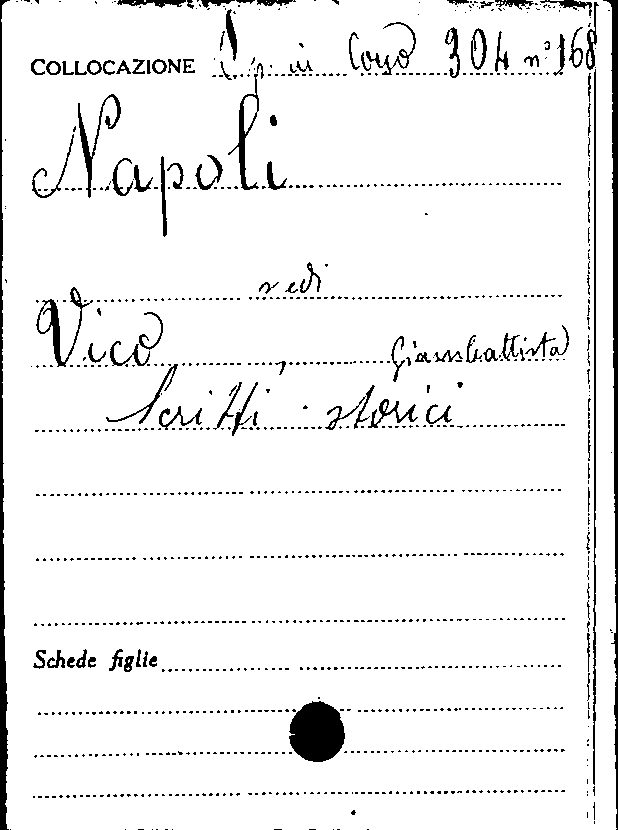 COLLOCAZIONE Op. in Corso 304 n° 168
Napoli
vedi
Vico, Giambattista
Scritti storici
Schede figlie